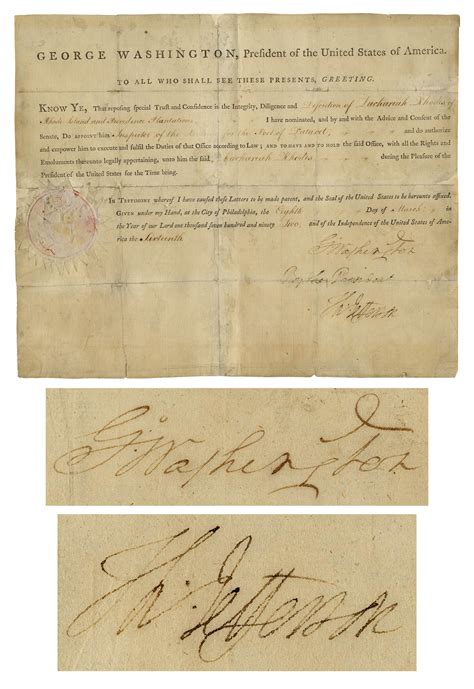 GEORGE WASHINGTON, President of the United States of America.
TO ALL WHO SHALL SEE THESE PRESENTS, GREETING.
KNOW YE, That reposing special Trust and Confidence in the Integrity, Diligence and Discretion of Zachariah Rhodes of
Rhode Island and Providence Plantations I have nominated, and by and with the Advice and Consent of the
Senate, DO APPOINT him Inspector of the for the Port of Pawtuxet, and do authorize
and empower him to execute and fulfil the Duties of that Office according to Law; AND TO HAVE AND TO HOLD the said Office, with all the Rights and
Emoluments thereunto legally appertaining, unto him the said Zachariah Rhodes during the Pleasure of the
President of the United States for the Time being.
IN TESTIMONY whereof I have caused these Letters to be made patent, and the Seal of the United States to be hereunto affixed.
GIVEN under my Hand, at the City of Philadelphia, the Eighth Day of March in the
Year of our Lord one thousand seven hundred and ninety Two, and of the Independence of the United States of Ame-
rica the Sixteenth.
G:Washington
By the President
Th: Jefferson
G:Washington
Th: Jefferson